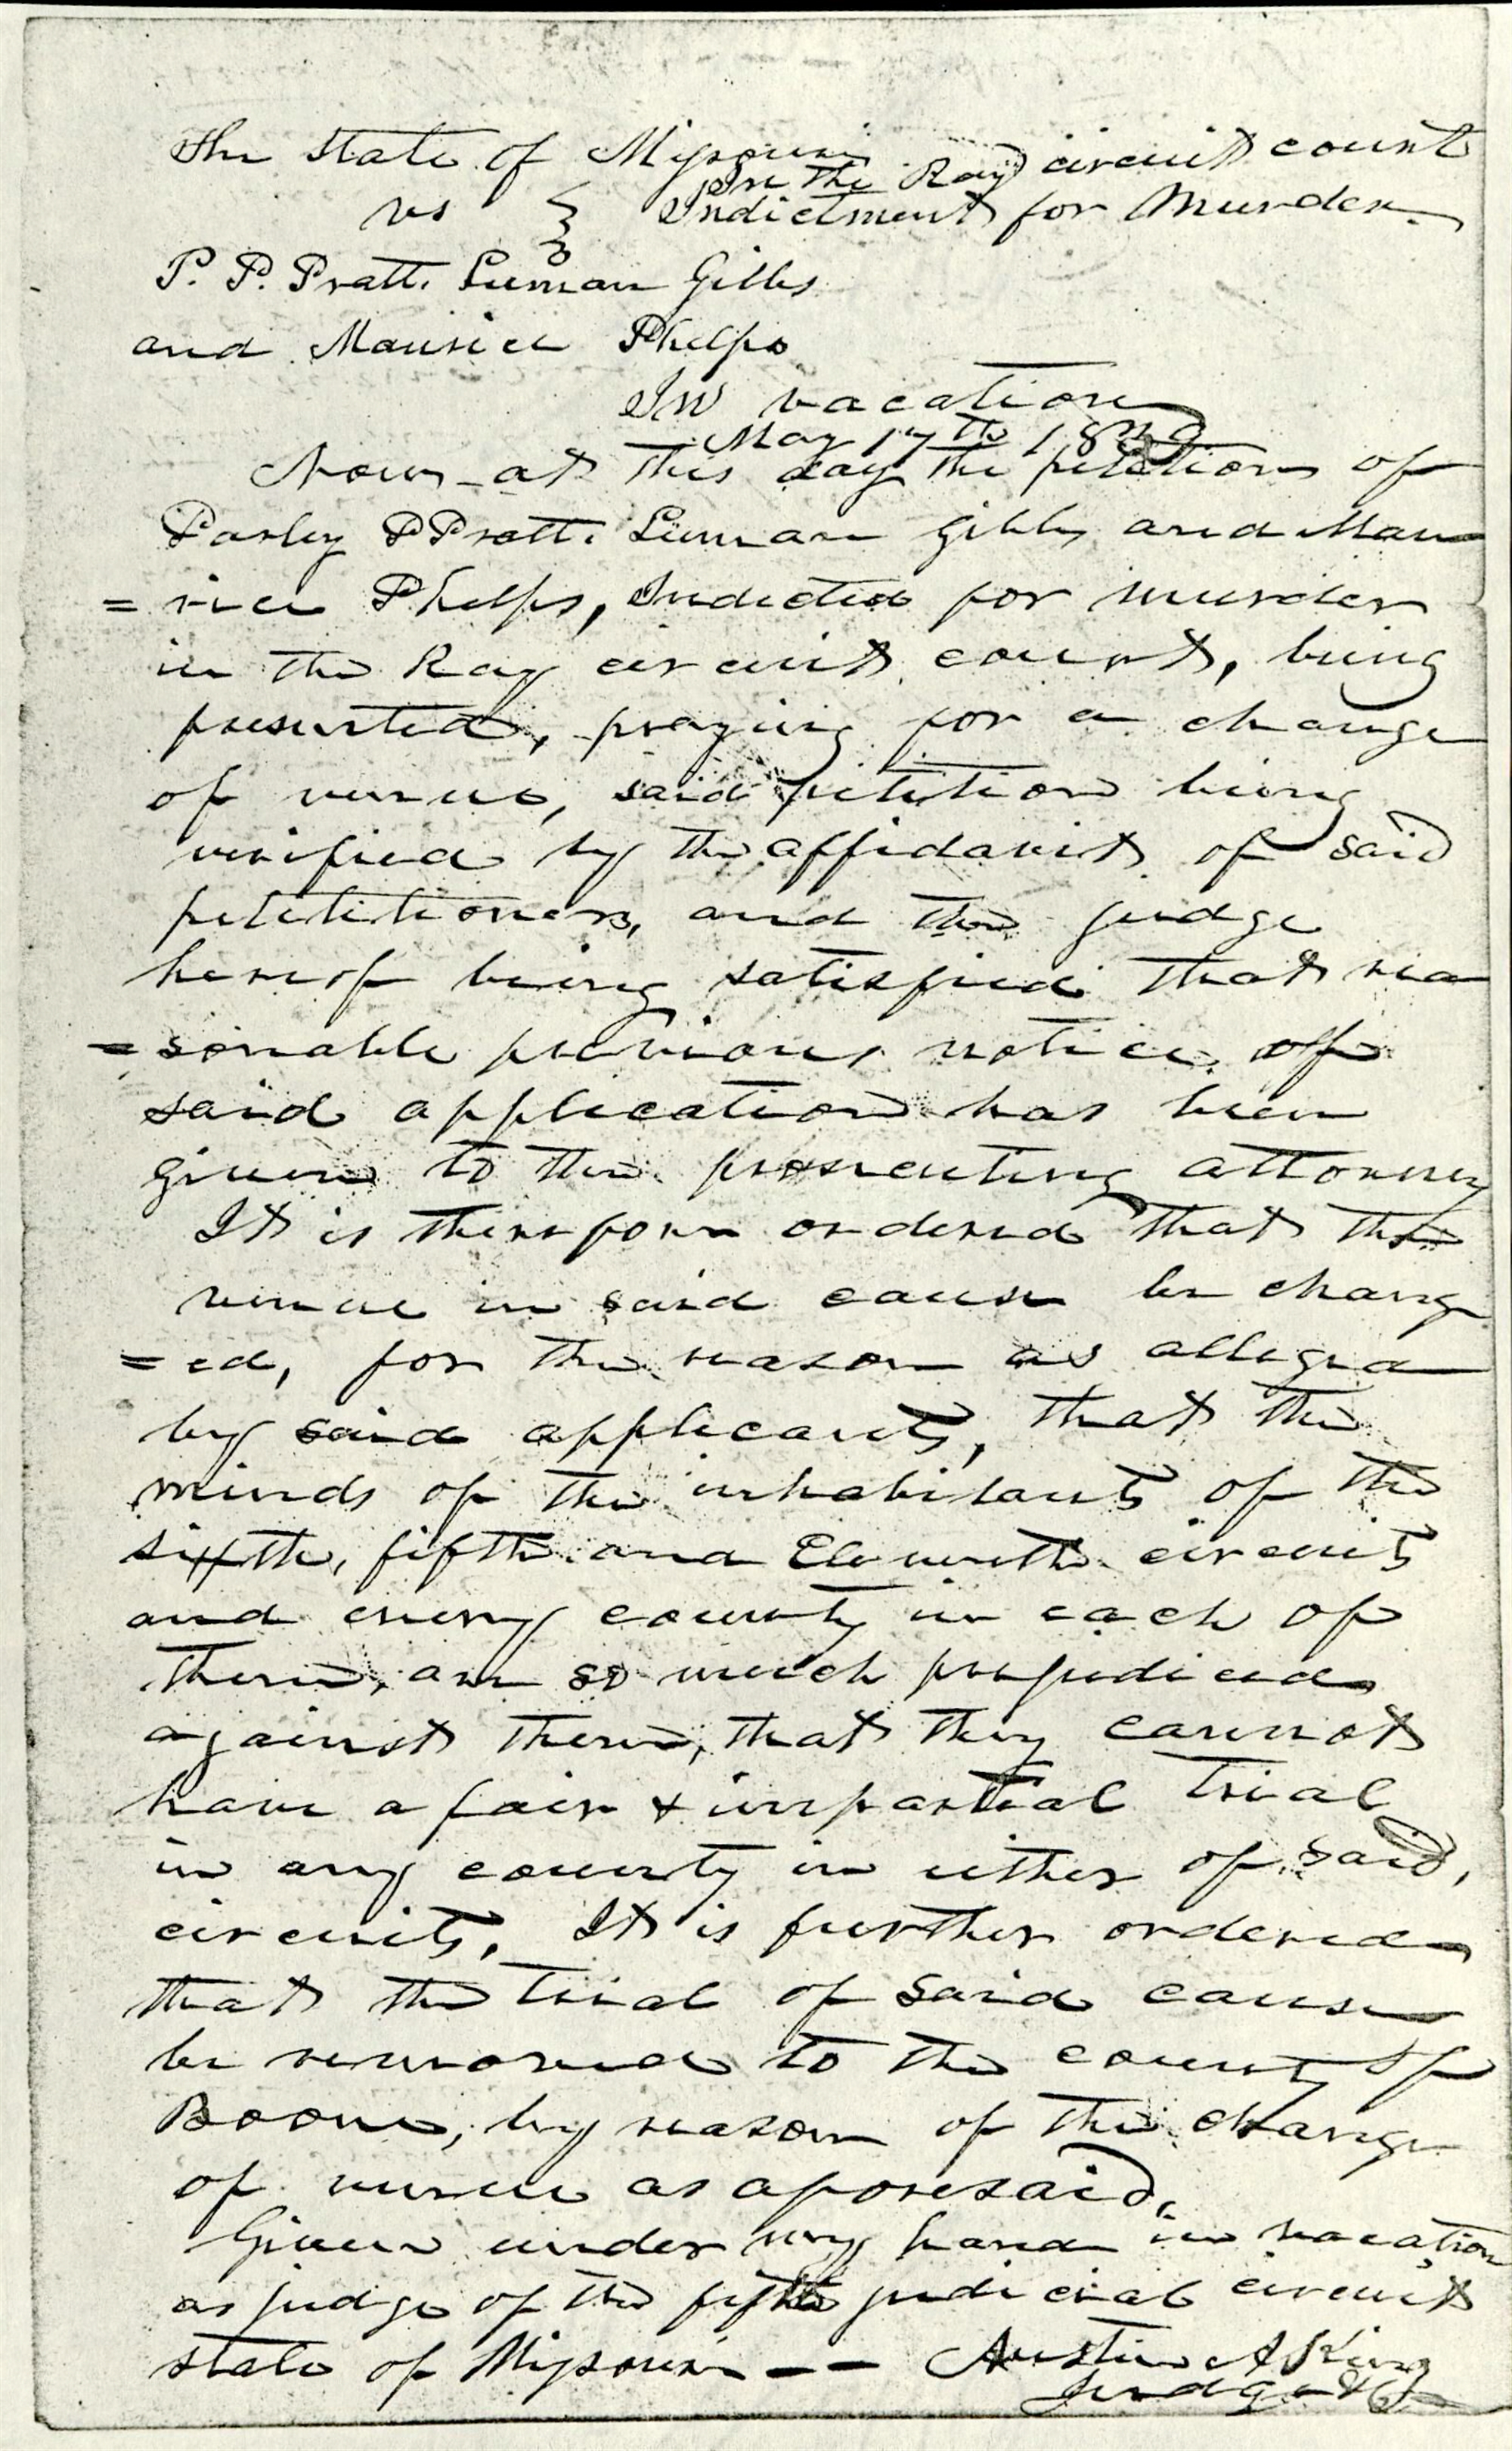 The State of Missouri
In the Ray circuit court
vs Indictment for Murder
P. P. Pratt. Luman Gibbs
and Maurice Phelps
In vacation
May 17th 1839
Now at this day the petition of
Parley P Pratt. Luman Gibbs and Mau
=rice Phelps, Indicted for murder
in the Ray circuit court, being
presented, praying for a change
of venue, said petition being
verified by the affidavit of said
petititioners, and the judge
hereof being satisfied that rea
=sonable previous notice of
said application has been
given to the prosecuting attorney
It is therefore ordered that the
venue in said cause be chang
=ed, for the reason as alleged
by said applicants, that the
minds of the inhabitants of the
sixth, fifth and Eleventh circuits
and every county in each of
them, are so much prejudiced
against them, that they cannot
have a fair & impartial trial
in any county in either of said,
circuits. It is further ordered
that the trial of said cause
be removed to the county of
Boone, by reason of the change
of venue as aforesaid.
Given under my hand in vacation
as judge of the fifth judicial circuit
state of Missouri -- Austin A King
Judge &c